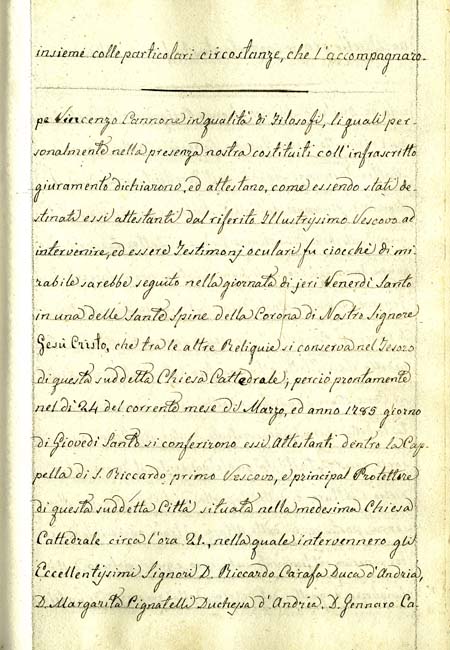 insieme colle particolari circostanze, che l'accompagnaro-
pe Vincenzo Cannone in qualità di Filosofi, li quali per-
sonalmente nella presenza nostra costituiti coll'infrascritto
giuramento dichiarono, ed attestano, come essendo stati de-
stinati essi attestanti dal riferito Illustrissimo Vescovo ad
intervenire, ed essere Testimonj oculari su ciocchè di mi-
rabile sarebbe seguito nella giornata di jeri Venerdì Santo
in una delle Sante Spine della Corona di Nostro Signore
Gesù Cristo, che tra le altre Reliquie si conserva nel Tesoro
di questa suddetta Chiesa Cattedrale; perciò prontamente
nel dì 24 del corrente mese di Marzo, ed anno 1785 giorno
di Giovedì Santo si conferirono essi Attestanti dentro la Cap-
pella di S. Riccardo primo Vescovo, e principal Protettore
di questa suddetta Città situata nella medesima Chiesa
Cattedrale circa l'ora 21., nella quale intervennero gli
Eccellentissimi Signori D. Riccardo Carafa Duca d'Andria,
D. Margarita Pignatelli Duchessa d'Andria, D. Gennaro Ca-